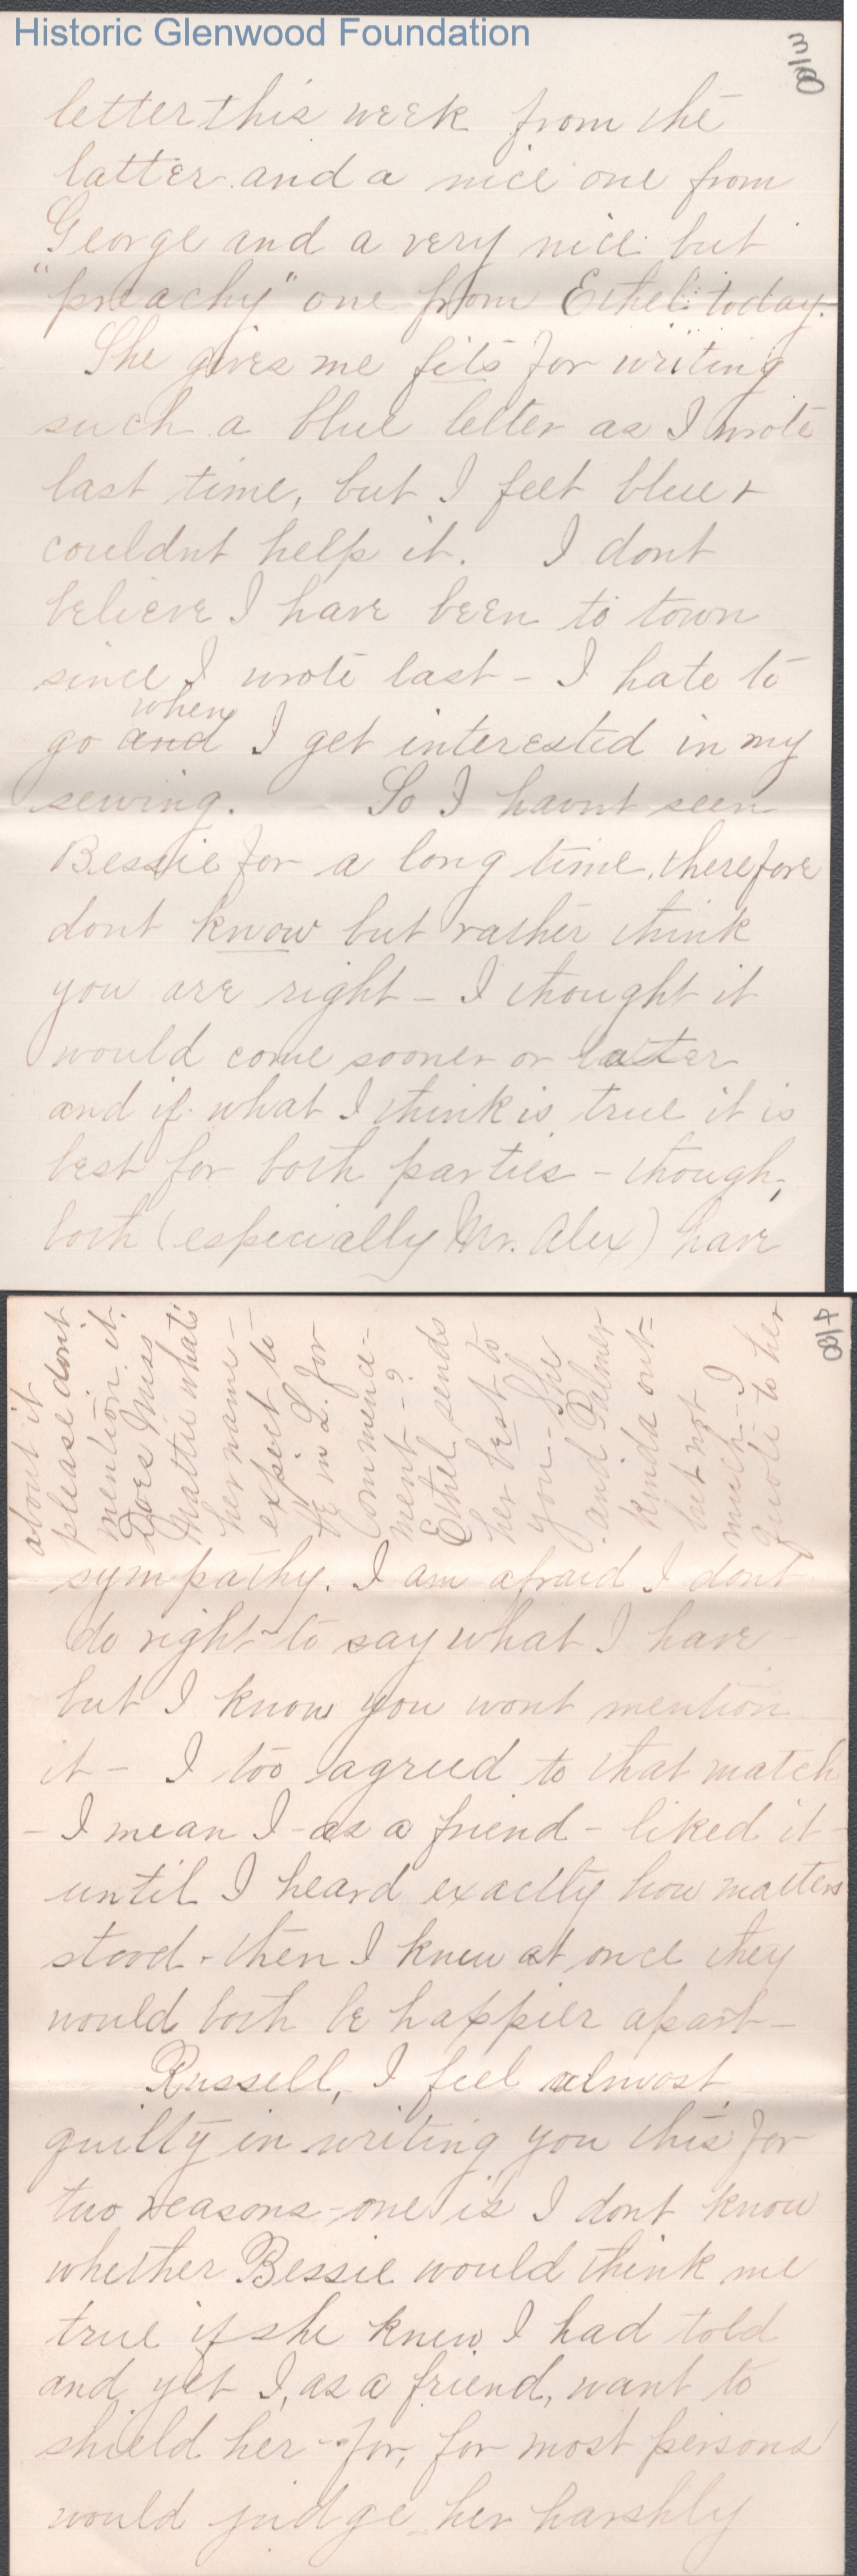 Historic Glenwood Foundation
3/8
letter this week from the
latter and a nice one from
George and a very nice but
"preachy" one from Ethel today.
She gives me fits for writing
such a blue letter as I wrote
last time, but I felt blue +
couldnt help it. I dont
believe I have been to town
since I wrote last - I hate to
when
go and I get interested in my
sewing. So I havnt seen
Bessie for a long time, therefore
dont know but rather think
you are right - I thought it
would come sooner or later
and if what I think is true it is
best for both parties - though,
both (especially Mr. Alex) have
4/8
about it
please don't
mention it.
Does Miss
Mattie what's
her name -
expect to
be in L. for
Commence-
ment -?
Ethel sends
her best to
you - She
and Palmer
kinda out=
but not
much - I
quote to her
sympathy. I am afraid I dont
do right to say what I have
but I know you wont mention
it - I too agreed to that match
- I mean I - as a friend - liked it -
until I heard exactly how matters
stood - then I knew at once they
would both be happier apart -
Russell, I feel almost
guilty in writing you this for
two reasons - one is I dont know
whether Bessie would think me
true if she knew I had told
and yet I, as a friend, want to
shield her - for, for most persons
would judge her harshly